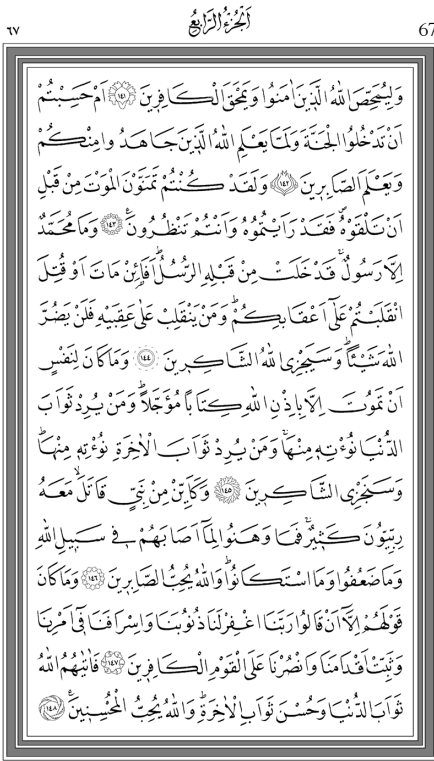 ٦٧ اَلْجُزْءُ الرَّابِعُ 67
وَلِيُمَحِّصَ اللّٰهُ الَّذ۪ينَ اٰمَنُوا وَيَمْحَقَ الْكَافِر۪ينَ ﴿١٤١﴾ اَمْ حَسِبْتُمْ
اَنْ تَدْخُلُوا الْجَنَّةَ وَلَمَّا يَعْلَمِ اللّٰهُ الَّذ۪ينَ جَاهَدُوا مِنْكُمْ
وَيَعْلَمَ الصَّابِر۪ينَ ﴿١٤٢﴾ وَلَقَدْ كُنْتُمْ تَمَنَّوْنَ الْمَوْتَ مِنْ قَبْلِ
اَنْ تَلْقَوْهُۖ فَقَدْ رَاَيْتُمُوهُ وَاَنْتُمْ تَنْظُرُونَ۟ ﴿١٤٣﴾ وَمَا مُحَمَّدٌ
اِلَّا رَسُولٌۚ قَدْ خَلَتْ مِنْ قَبْلِهِ الرُّسُلُۜ اَفَا۬ئِنْ مَاتَ اَوْ قُتِلَ
انْقَلَبْتُمْ عَلٰٓى اَعْقَابِكُمْۜ وَمَنْ يَنْقَلِبْ عَلٰى عَقِبَيْهِ فَلَنْ يَضُرَّ
اللّٰهَ شَيْـًٔاۜ وَسَيَجْزِي اللّٰهُ الشَّاكِر۪ينَ ﴿١٤٤﴾ وَمَا كَانَ لِنَفْسٍ
اَنْ تَمُوتَ اِلَّا بِاِذْنِ اللّٰهِ كِتَابًا مُؤَجَّلًاۜ وَمَنْ يُرِدْ ثَوَابَ
الدُّنْيَا نُؤْتِه۪ مِنْهَاۚ وَمَنْ يُرِدْ ثَوَابَ الْاٰخِرَةِ نُؤْتِه۪ مِنْهَاۜ
وَسَنَجْزِي الشَّاكِر۪ينَ ﴿١٤٥﴾ وَكَاَيِّنْ مِنْ نَبِيٍّ قَاتَلَۙ مَعَهُ
رِبِّيُّونَ كَث۪يرٌۚ فَمَا وَهَنُوا لِمَٓا اَصَابَهُمْ ف۪ي سَب۪يلِ اللّٰهِ
وَمَا ضَعُفُوا وَمَا اسْتَكَانُواۜ وَاللّٰهُ يُحِبُّ الصَّابِر۪ينَ ﴿١٤٦﴾ وَمَا كَانَ
قَوْلَهُمْ اِلَّٓا اَنْ قَالُوا رَبَّنَا اغْفِرْ لَنَا ذُنُوبَنَا وَاِسْرَافَنَا ف۪ٓي اَمْرِنَا
وَثَبِّتْ اَقْدَامَنَا وَانْصُرْنَا عَلَى الْقَوْمِ الْكَافِر۪ينَ ﴿١٤٧﴾ فَاٰتٰيهُمُ اللّٰهُ
ثَوَابَ الدُّنْيَا وَحُسْنَ ثَوَابِ الْاٰخِرَةِۜ وَاللّٰهُ يُحِبُّ الْمُحْسِن۪ينَ۟ ﴿١٤٨﴾